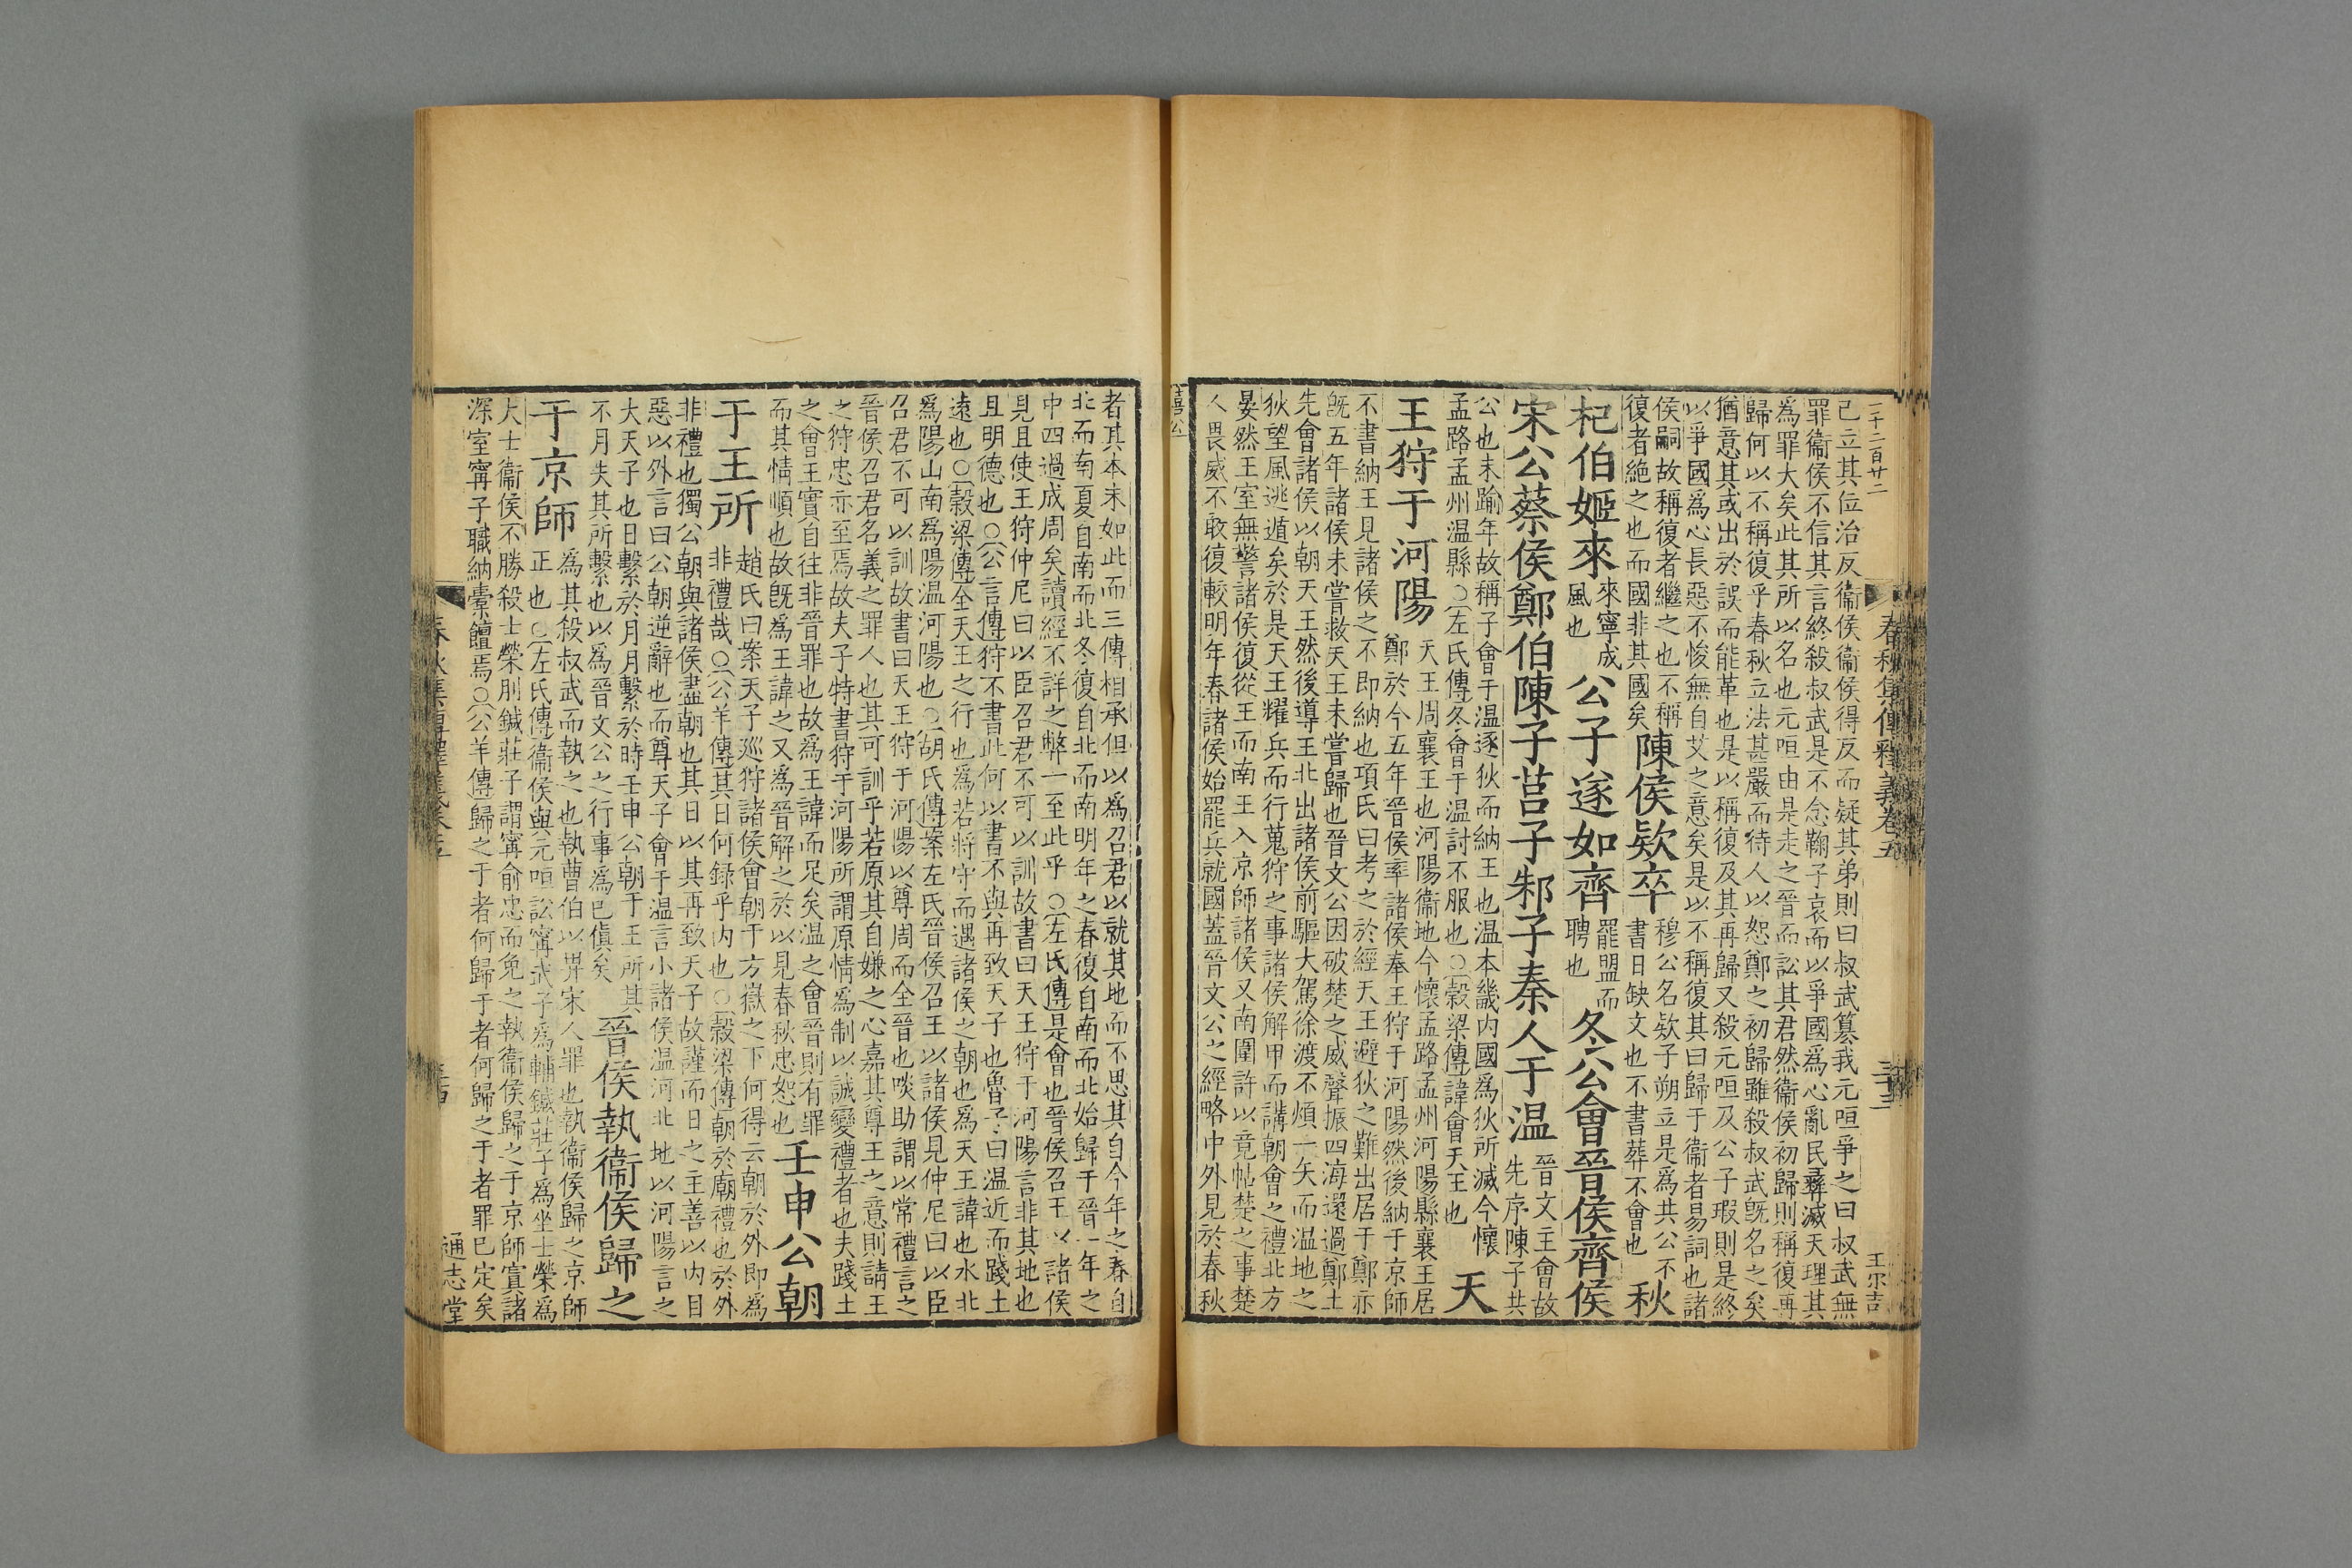 春秋集傳釋義卷五
三十三
王尔吉
已立其位治反衞侯衞侯得反而疑其弟則曰叔武簒我元咺爭之曰叔武無
罪衞侯不信其言終殺叔武是不念鞠子哀而以爭國爲心亂民彛滅天理其
爲罪大矣此其所以名也元咺由是走之晉而訟其君然衞侯初歸則稱復再
歸何以不稱復乎春秋立法甚嚴而待人以恕鄭之初歸雖殺叔武旣名之矣
猶意其或出於誤而能革也是以稱復及其再歸又殺元咺及公子瑕則是終
以爭國爲心長惡不悛無自艾之意矣是以不稱復其曰歸于衞者易詞也諸
侯嗣故稱復者繼之也不稱
復者絶之也而國非其國矣
陳侯欵卒
穆公名欵子朔立是爲共公不
書日缺文也不書葬不會也
秋
杞伯姬來
來寧成
風也
公子遂如齊
罷盟而
聘也
冬公會晉侯齊侯
宋公蔡侯鄭伯陳子莒子邾子秦人于温
晉文主會故
先序陳子共
公也未踰年故稱子會于温逐狄而納王也温本畿内國爲狄所滅今懷
孟路孟州温縣○左氏傳冬會于温討不服也○穀梁傳諱會天王也
天
王狩于河陽
天王周襄王也河陽衞地今懷孟路孟州河陽縣襄王居
鄭於今五年晉侯率諸侯奉王狩于河陽然後納于京師
不書納王見諸侯之不即納也項氏曰考之於經天王避狄之難出居于鄭亦
旣五年諸侯未嘗救天王未嘗歸也晉文公因破楚之威聲振四海還過鄭土
先會諸侯以朝天王然後導王北出諸侯前驅大駕徐渡不煩一矢而温地之
狄望風逃遁矣於是天王耀兵而行蒐狩之事諸侯解甲而講朝會之禮北方
晏然王室無警諸侯復從王而南王入京師諸侯又南圍許以竟帖楚之事楚
人畏威不敢復較明年春諸侯始罷兵就國蓋晉文公之經略中外見於春秋
僖公
者其本末如此而三傳相承但以爲召君以就其地而不思其自今年之春自
北而南夏自南而北冬復自北而南明年之春復自南而北始歸于晉一年之
中四過成周矣讀經不詳之弊一至此乎○左氏傳是會也晉侯召王以諸侯
見且使王狩仲尼曰以臣召君不可以訓故書曰天王狩于河陽言非其地也
且明德也○公言傳狩不書此何以書不與再致天子也魯子曰温近而踐土
遠也○穀梁傳全天王之行也爲若將守而遇諸侯之朝也爲天王諱也水北
爲陽山南爲陽温河陽也○胡氏傳案左氏晉侯召王以諸侯見仲尼曰以臣
召君不可以訓故書曰天王狩于河陽以尊周而全晉也啖助謂以常禮言之
晉侯召君名義之罪人也其可訓乎若原其自嫌之心嘉其尊王之意則請王
之狩忠亦至焉故夫子特書狩于河陽所謂原情爲制以誠變禮者也夫踐土
之會王實自往非晉罪也故爲王諱而足矣温之會晉則有罪
而其情順也故旣爲王諱之又爲晉解之於以見春秋忠恕也
壬申公朝
于王所
趙氏曰案天子廵狩諸侯會朝于方嶽之下何得云朝於外即爲
非禮哉○公羊傳其日何録乎内也○穀梁傳朝於廟禮也於外
非禮也獨公朝與諸侯盡朝也其日以其再致天子故謹而日之主善以内目
惡以外言曰公朝逆辭也而尊天子會于温言小諸侯温河北地以河陽言之
大天子也日繫於月月繫於時壬申公朝于王所其
不月失其所繫也以爲晉文公之行事爲已傎矣
晉侯執衞侯歸之
于京師
爲其殺叔武而執之也執曹伯以畀宋人罪也執衞侯歸之京師
正也○左氏傳衞侯與元咺訟甯武子爲輔鍼莊子爲坐士榮爲
大士衞侯不勝殺士榮刖鍼莊子謂甯俞忠而免之執衞侯歸之于京師寘諸
深室甯子職納橐饘焉○公羊傳歸之于者何歸于者何歸之于者罪已定矣
通志堂